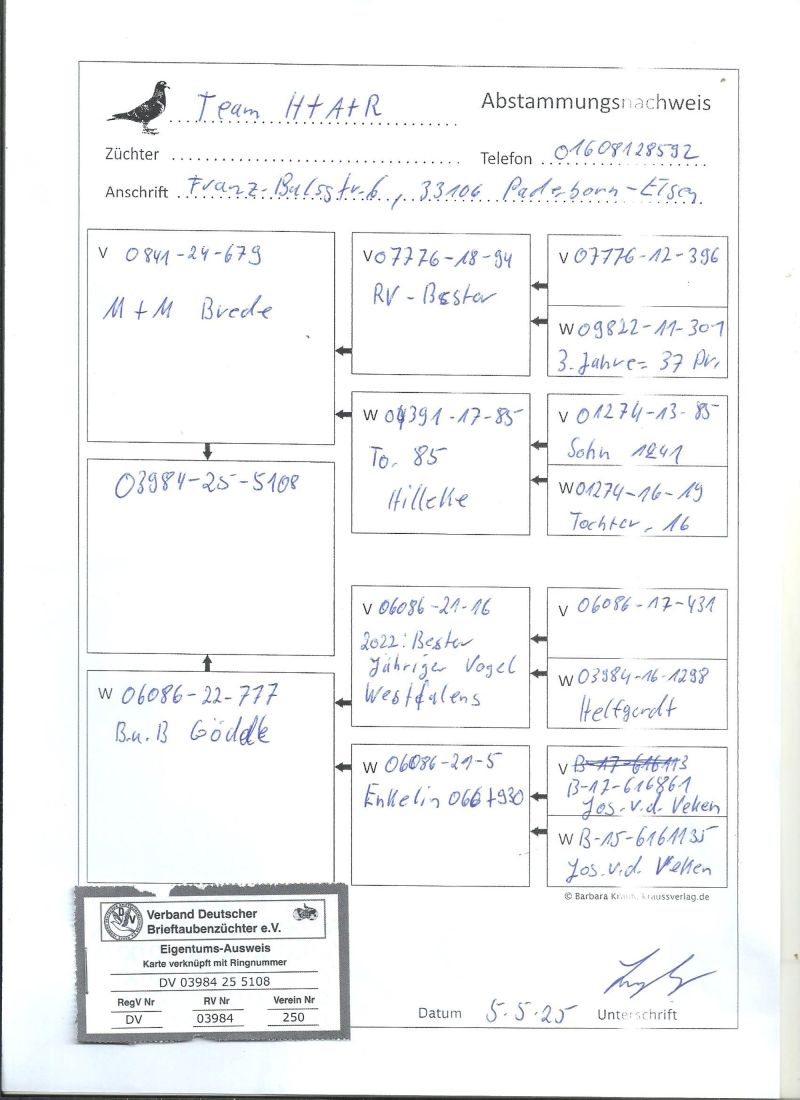 Team H+A+R
Abstammungsnachweis
Züchter
Telefon 01608128592
Anschrift Franz-Balsstr. 6, 33106 Paderborn-Elsen
V 0841-24-679
M+M Brede
V 07776-18-94
RV-Bester
V 07776-12-396
W 09822-11-301
3. Jahre = 37 Pr.
W 04391-17-85
To. 85
Hilleke
V 01274-13-85
Sohn 1241
W 01274-16-19
Tochter, 16
03984-25-5108
W 06086-22-777
B.u.B Göddk
V 06086-21-16
2022: Bester
Jähriger Vogel
Westfalens
V 06086-17-431
W 03984-16-1298
Helfgerdt
W 06086-21-5
Enkelin 066+930
V
B-17-616861
Jos.v.d. Veken
W B-15-6161135
Jos.v.d. Veken
© Barbara Krauß, kraussverlag.de
Verband Deutscher
Brieftaubenzüchter e.V.
Eigentums-Ausweis
Karte verknüpft mit Ringnummer
DV 03984 25 5108
RegV Nr RV Nr Verein Nr
DV 03984 250
Datum 5.5.25 Unterschrift